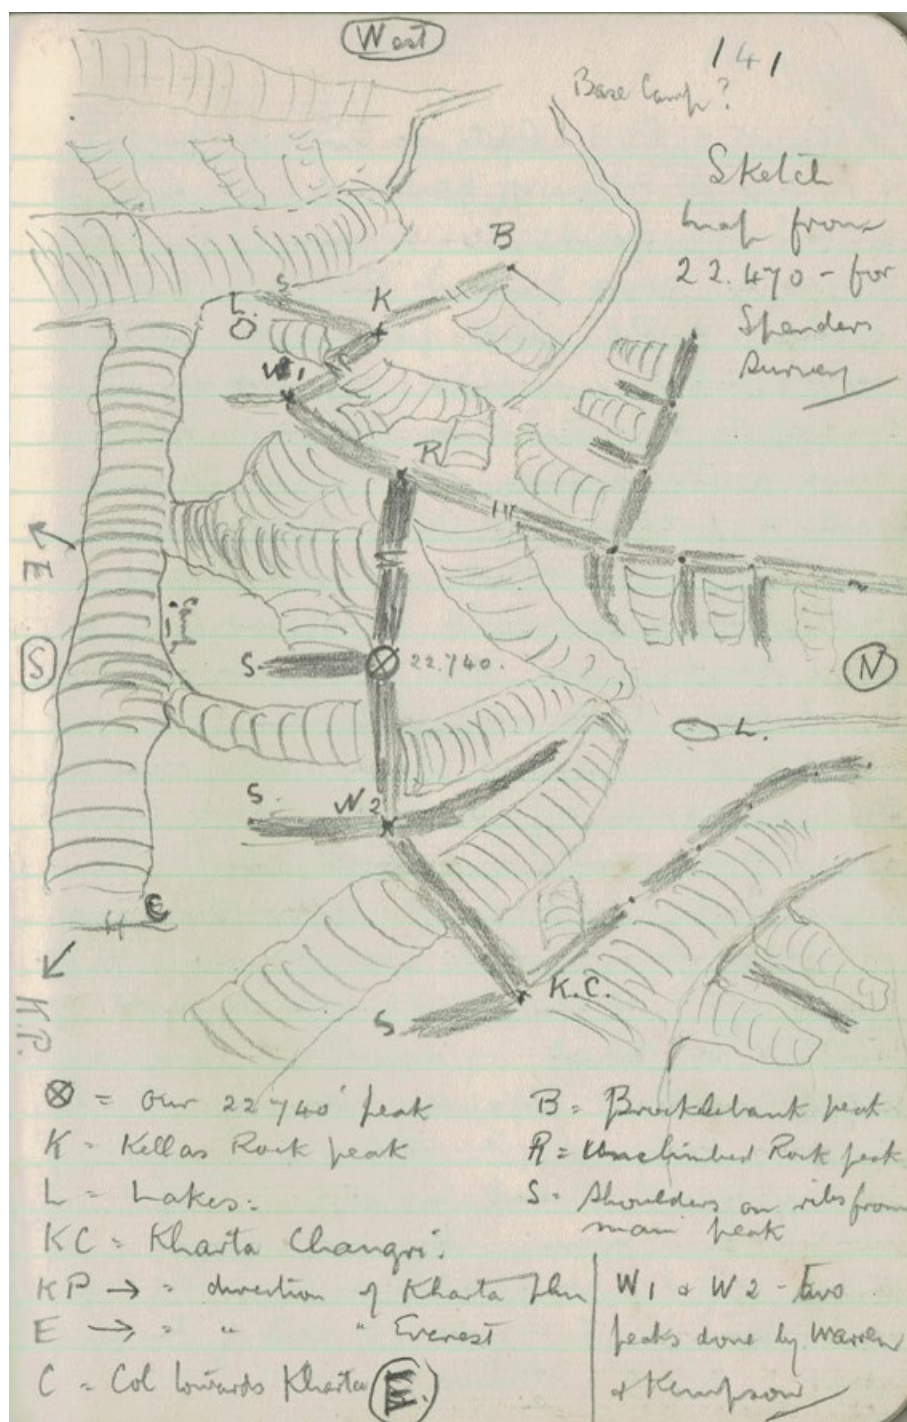 West
141
Base Camp?
Sketch
map from
22.470 - for
Spenders
Survey
B
S
L.
K
W1
R
E
Camp
S
S
22.740.
N
L.
S.
W2
C
K.C.
S
K.P.
⊗ = our 22740' peak
K = Kellas Rock peak
L = Lakes.
KC = Kharta Changri.
KP → = direction of Kharta Phu
E → = " " Everest
C = Col towards Kharta
E.
B = Brocklebank peak
R = Unclimbed Rock peak
S = Shoulders on ribs from
main peak
W1 & W2 - two
peaks done by Warren
& Kempson